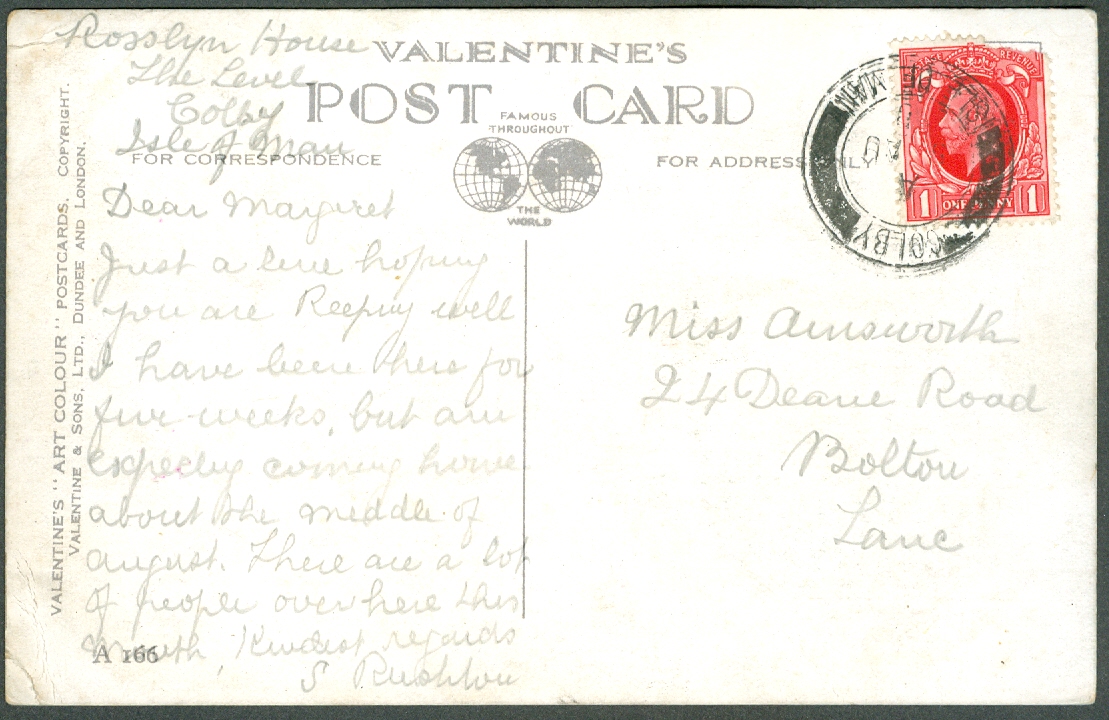 Rosslyn House
The Level
Colby
Isle of Man
VALENTINE'S
POST CARD
FAMOUS
THROUGHOUT
THE
WORLD
FOR CORRESPONDENCE
FOR ADDRESS ONLY
Dear Margaret
Just a line hoping
you are keeping well
I have been here for
five weeks, but am
expecting coming home
about the middle of
august. There are a lot
of people over here this
month, Kindest regards
S Rushton
A 166
VALENTINE'S "ART COLOUR" POSTCARDS. COPYRIGHT.
VALENTINE & SONS, LTD., DUNDEE AND LONDON.
POSTAGE REVENUE
1 ONE PENNY 1
COLBY
OF MAN
AU
Miss Ainsworth
24 Deane Road
Bolton
Lanc